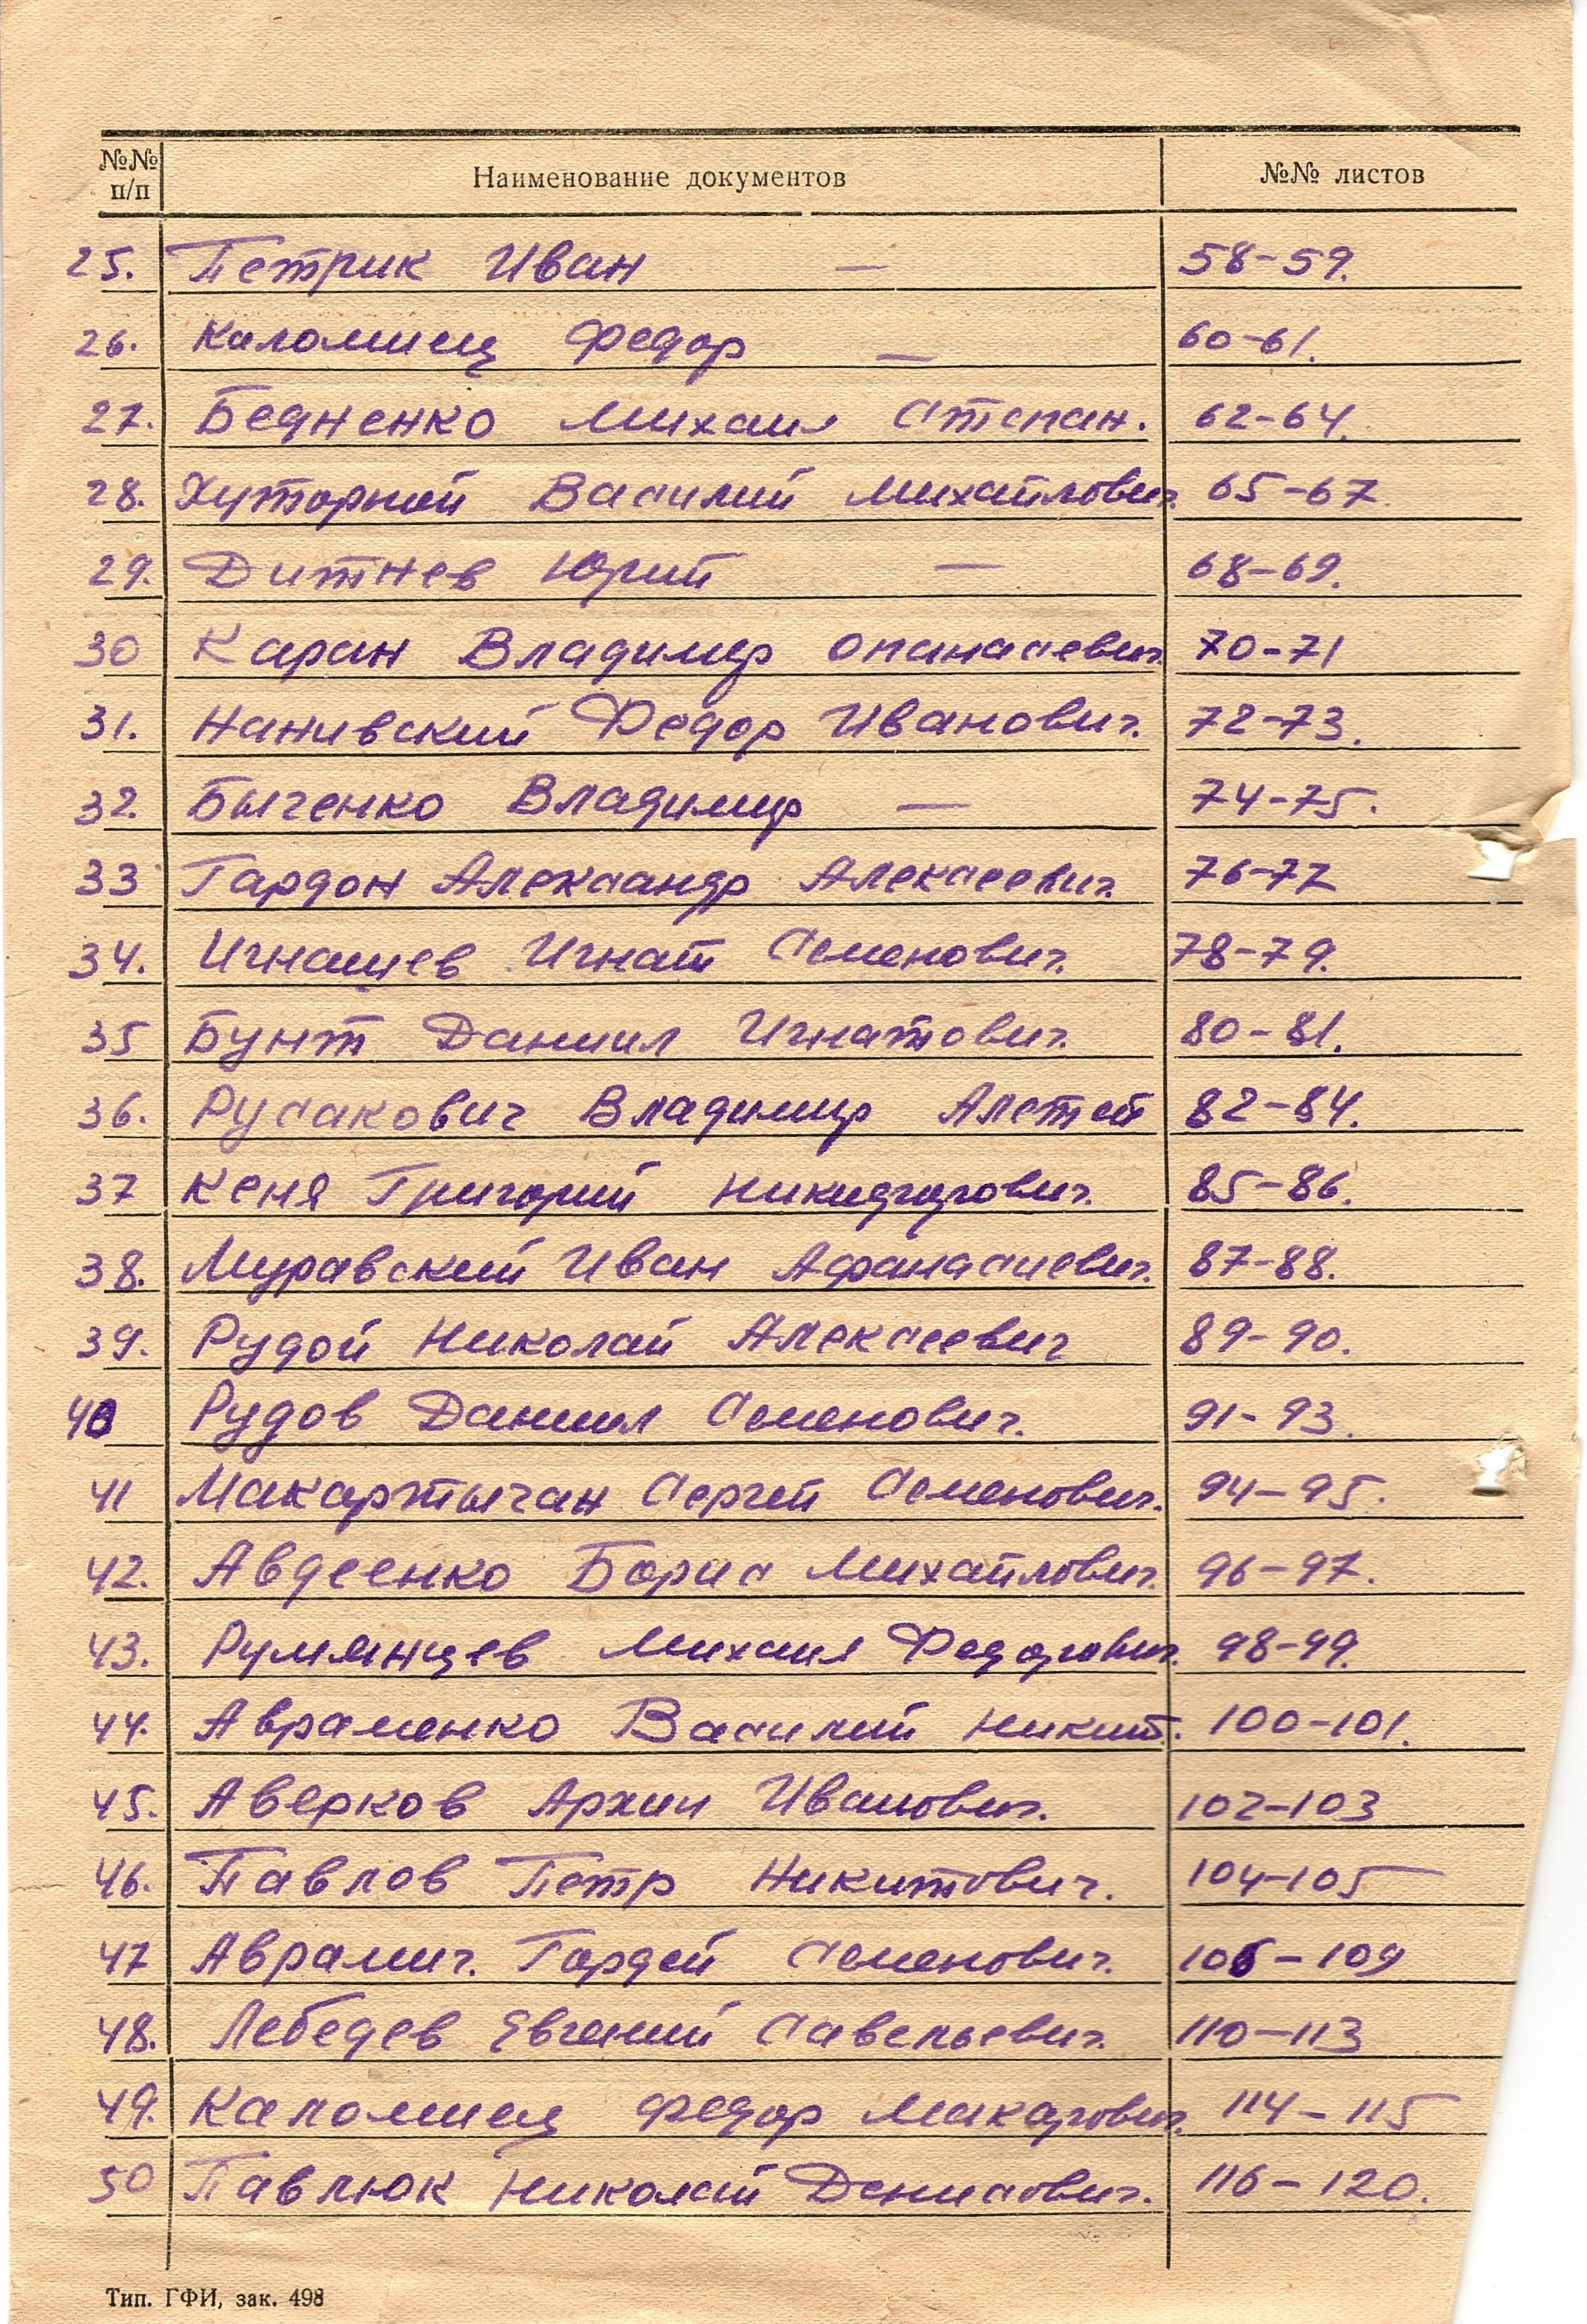 №№ п/п Наименование документов №№ листов
25. Петрик Иван — 58-59.
26. Каломиец Федор — 60-61.
27. Бедненко Михаил Степан. 62-64.
28. Хуторной Василий Михайлович. 65-67
29. Дитнев Юрий — 68-69.
30 Каран Владимир Опанасевич. 70-71
31. Нанивский Федор Иванович. 72-73.
32. Быченко Владимир — 74-75.
33 Гардон Александр Алексеевич. 76-77
34. Игнашев Игнат Семенович. 78-79.
35 Бунт Даниил Игнатович. 80-81.
36. Русакович Владимир 82-84.
37 Кеня Григорий 85-86.
38. Муравский Иван Афанасиевич. 87-88.
39. Рудой Николай Алексеевич 89-90.
40 Рудов Даниил Семенович. 91-93.
41 Макартычан Сергей Семенович. 94-95.
42. Авдеенко Борис Михайлович. 96-97.
43. Румянцев Михаил Федорович. 98-99.
44. Авраменко Василий Никит. 100-101.
45. Аверков Архип Иванович. 102-103
46. Павлов Петр Никитович. 104-105
47 Аврамич. Гордей Семенович. 106-109
48. Лебедев Евгений Савельевич. 110-113
49. Каломиец Федор Макарович. 114-115
50 Павлюк Николай Денисович. 116-120.
Тип. ГФИ, зак. 498